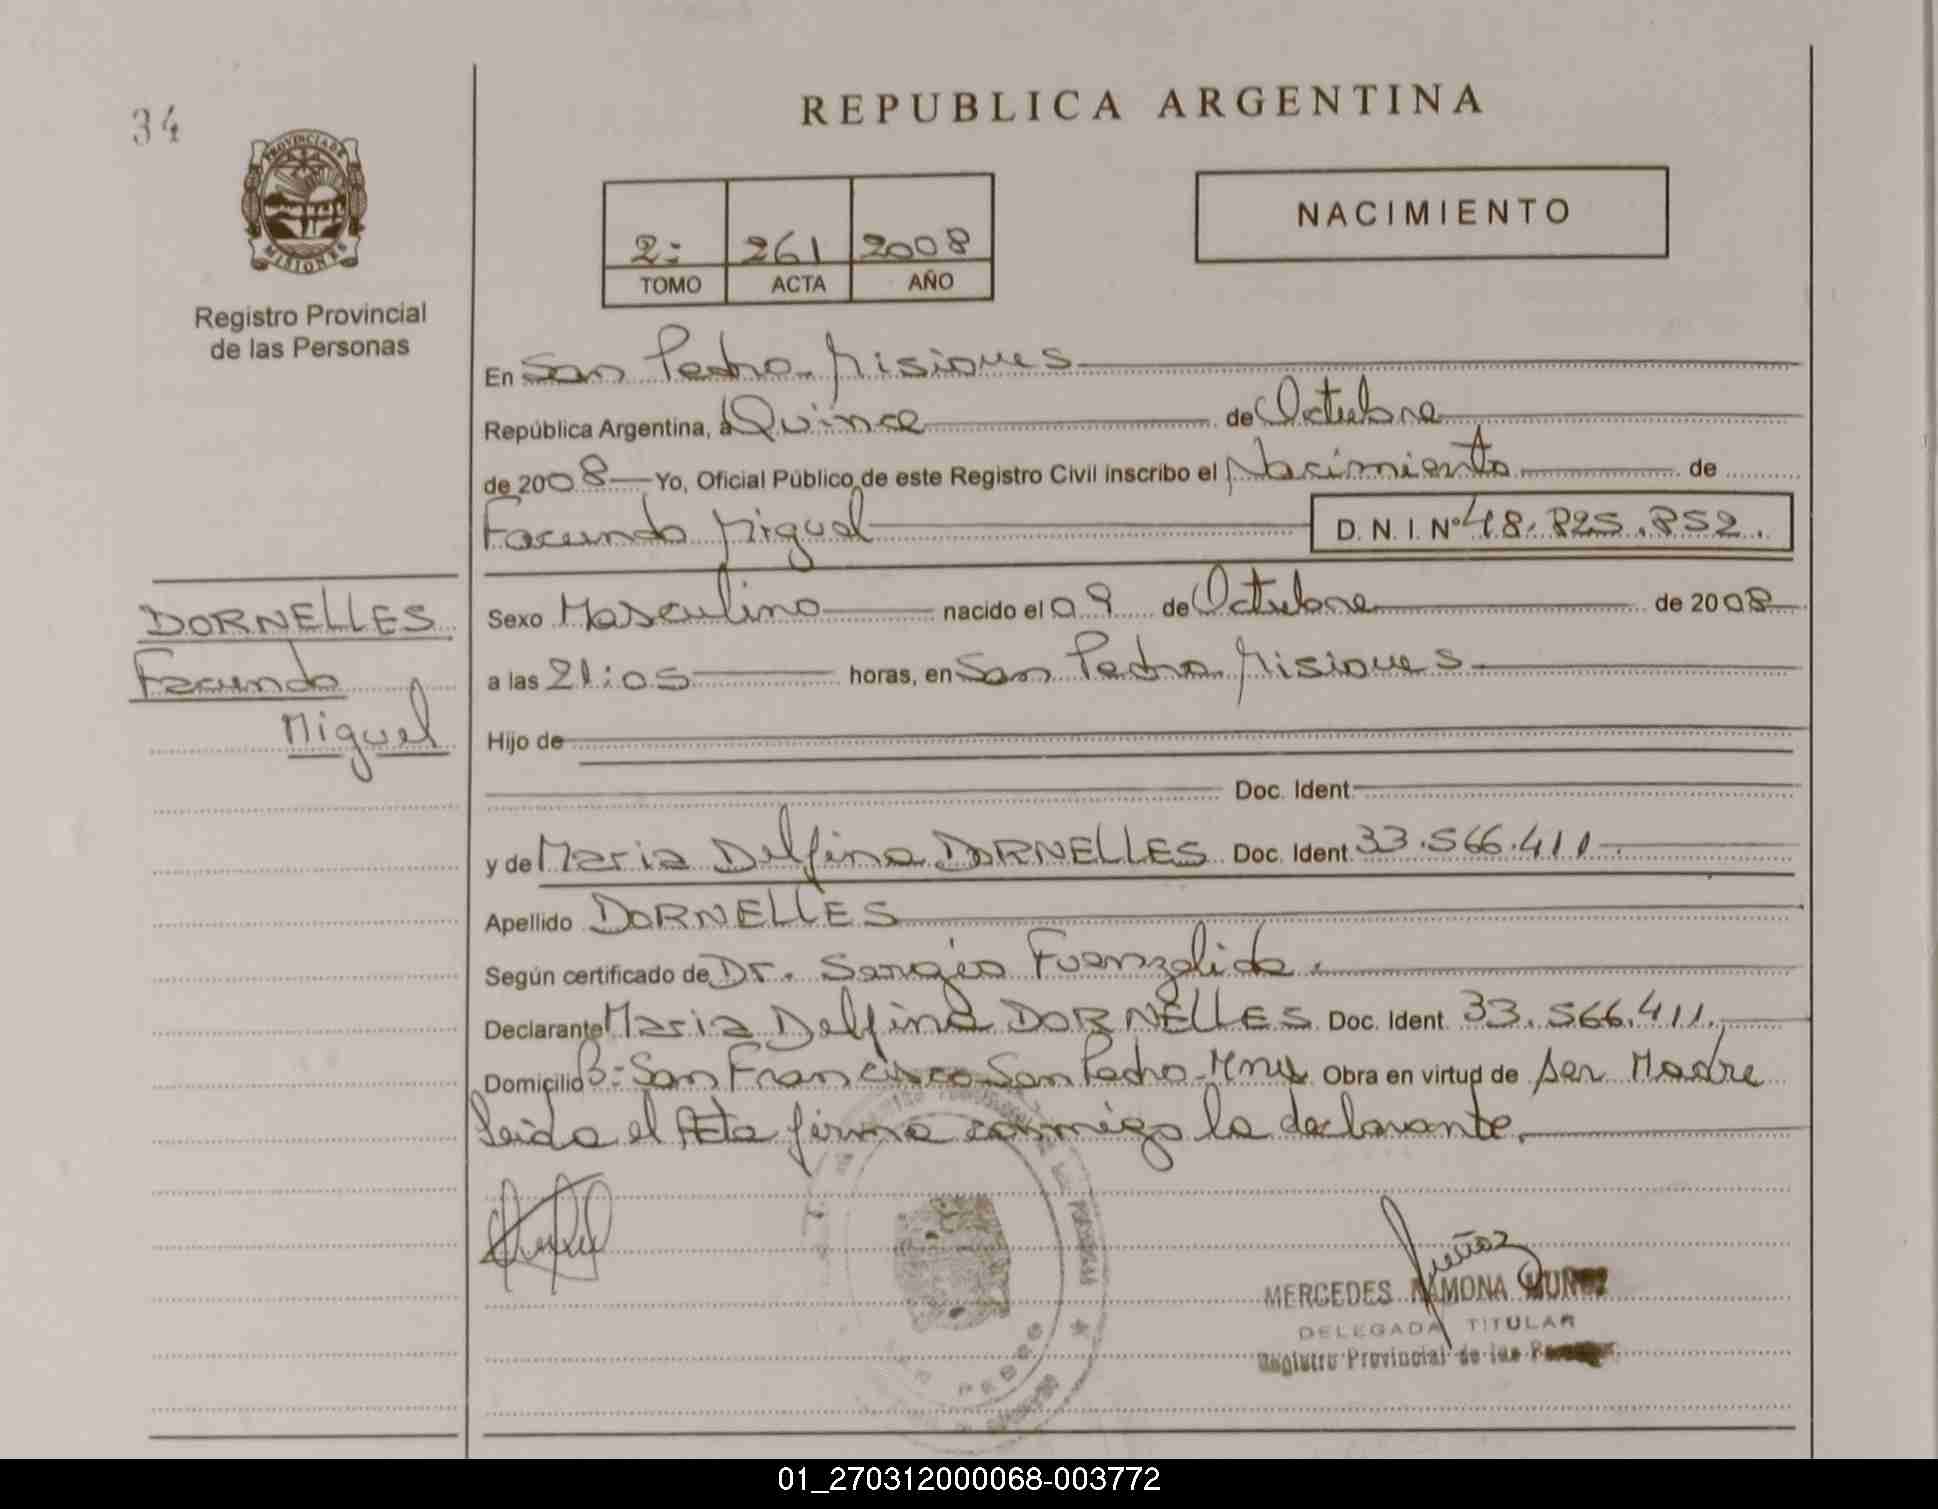 34
REPUBLICA ARGENTINA
PROVINCIA DE
MISIONES
Registro Provincial
de las Personas
2: 261 2008
TOMO ACTA AÑO
NACIMIENTO
En San Pedro. Misiones
República Argentina, a Quince de Octubre
de 2008 Yo, Oficial Público de este Registro Civil inscribo el Nacimiento de
Facundo Miguel D. N. I. Nº 48.825.852.
DORNELLES
Facundo
Miguel
Sexo Masculino nacido el 09 de Octubre de 2008
a las 21:05 horas, en San Pedro. Misiones
Hijo de
Doc. Ident.
y de Maria Delfina DORNELLES Doc. Ident. 33.566.411.
Apellido DORNELLES
Según certificado de Dr. Sergio Fuenzalida.
Declarante Maria Delfina DORNELLES Doc. Ident. 33.566.411.
Domicilio Bº San Francisco San Pedro. Mnes Obra en virtud de ser Madre
Leida el Acta firma conmigo la declarante.
Muñoz
MERCEDES RAMONA MUÑOZ
DELEGADA TITULAR
Registro Provincial de las
01_270312000068-003772